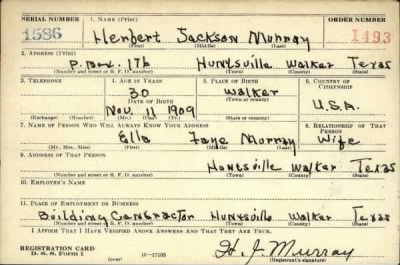 SERIAL NUMBER 1. NAME (Print) ORDER NUMBER
1586 Herbert Jackson Murray 1493
(First) (Middle) (Last)
2. ADDRESS (Print)
P.O. Box 176 Huntsville Walker Texas
(Number and street or R. F. D. number) (Town) (County) (State)
3. TELEPHONE 4. AGE IN YEARS 5. PLACE OF BIRTH 6. COUNTRY OF CITIZENSHIP
30 Walker
DATE OF BIRTH (Town or county)
Nov. 11 1909 U.S.A.
(Exchange) (Number) (Mo.) (Day) (Yr.) (State or country)
7. NAME OF PERSON WHO WILL ALWAYS KNOW YOUR ADDRESS 8. RELATIONSHIP OF THAT PERSON
Ella Murray Wife
(Mr., Mrs., Miss) (First) (Middle) (Last)
9. ADDRESS OF THAT PERSON
Huntsville Walker Texas
(Number and street or R. F. D. number) (Town) (County) (State)
10. EMPLOYER'S NAME
11. PLACE OF EMPLOYMENT OR BUSINESS
Building Contractor Huntsville Walker Texas
(Number and street or R. F. D. number) (Town) (County) (State)
I AFFIRM THAT I HAVE VERIFIED ABOVE ANSWERS AND THAT THEY ARE TRUE.
REGISTRATION CARD
D. S. S. Form 1 16-17105 H. J. Murray
(Registrant's signature)